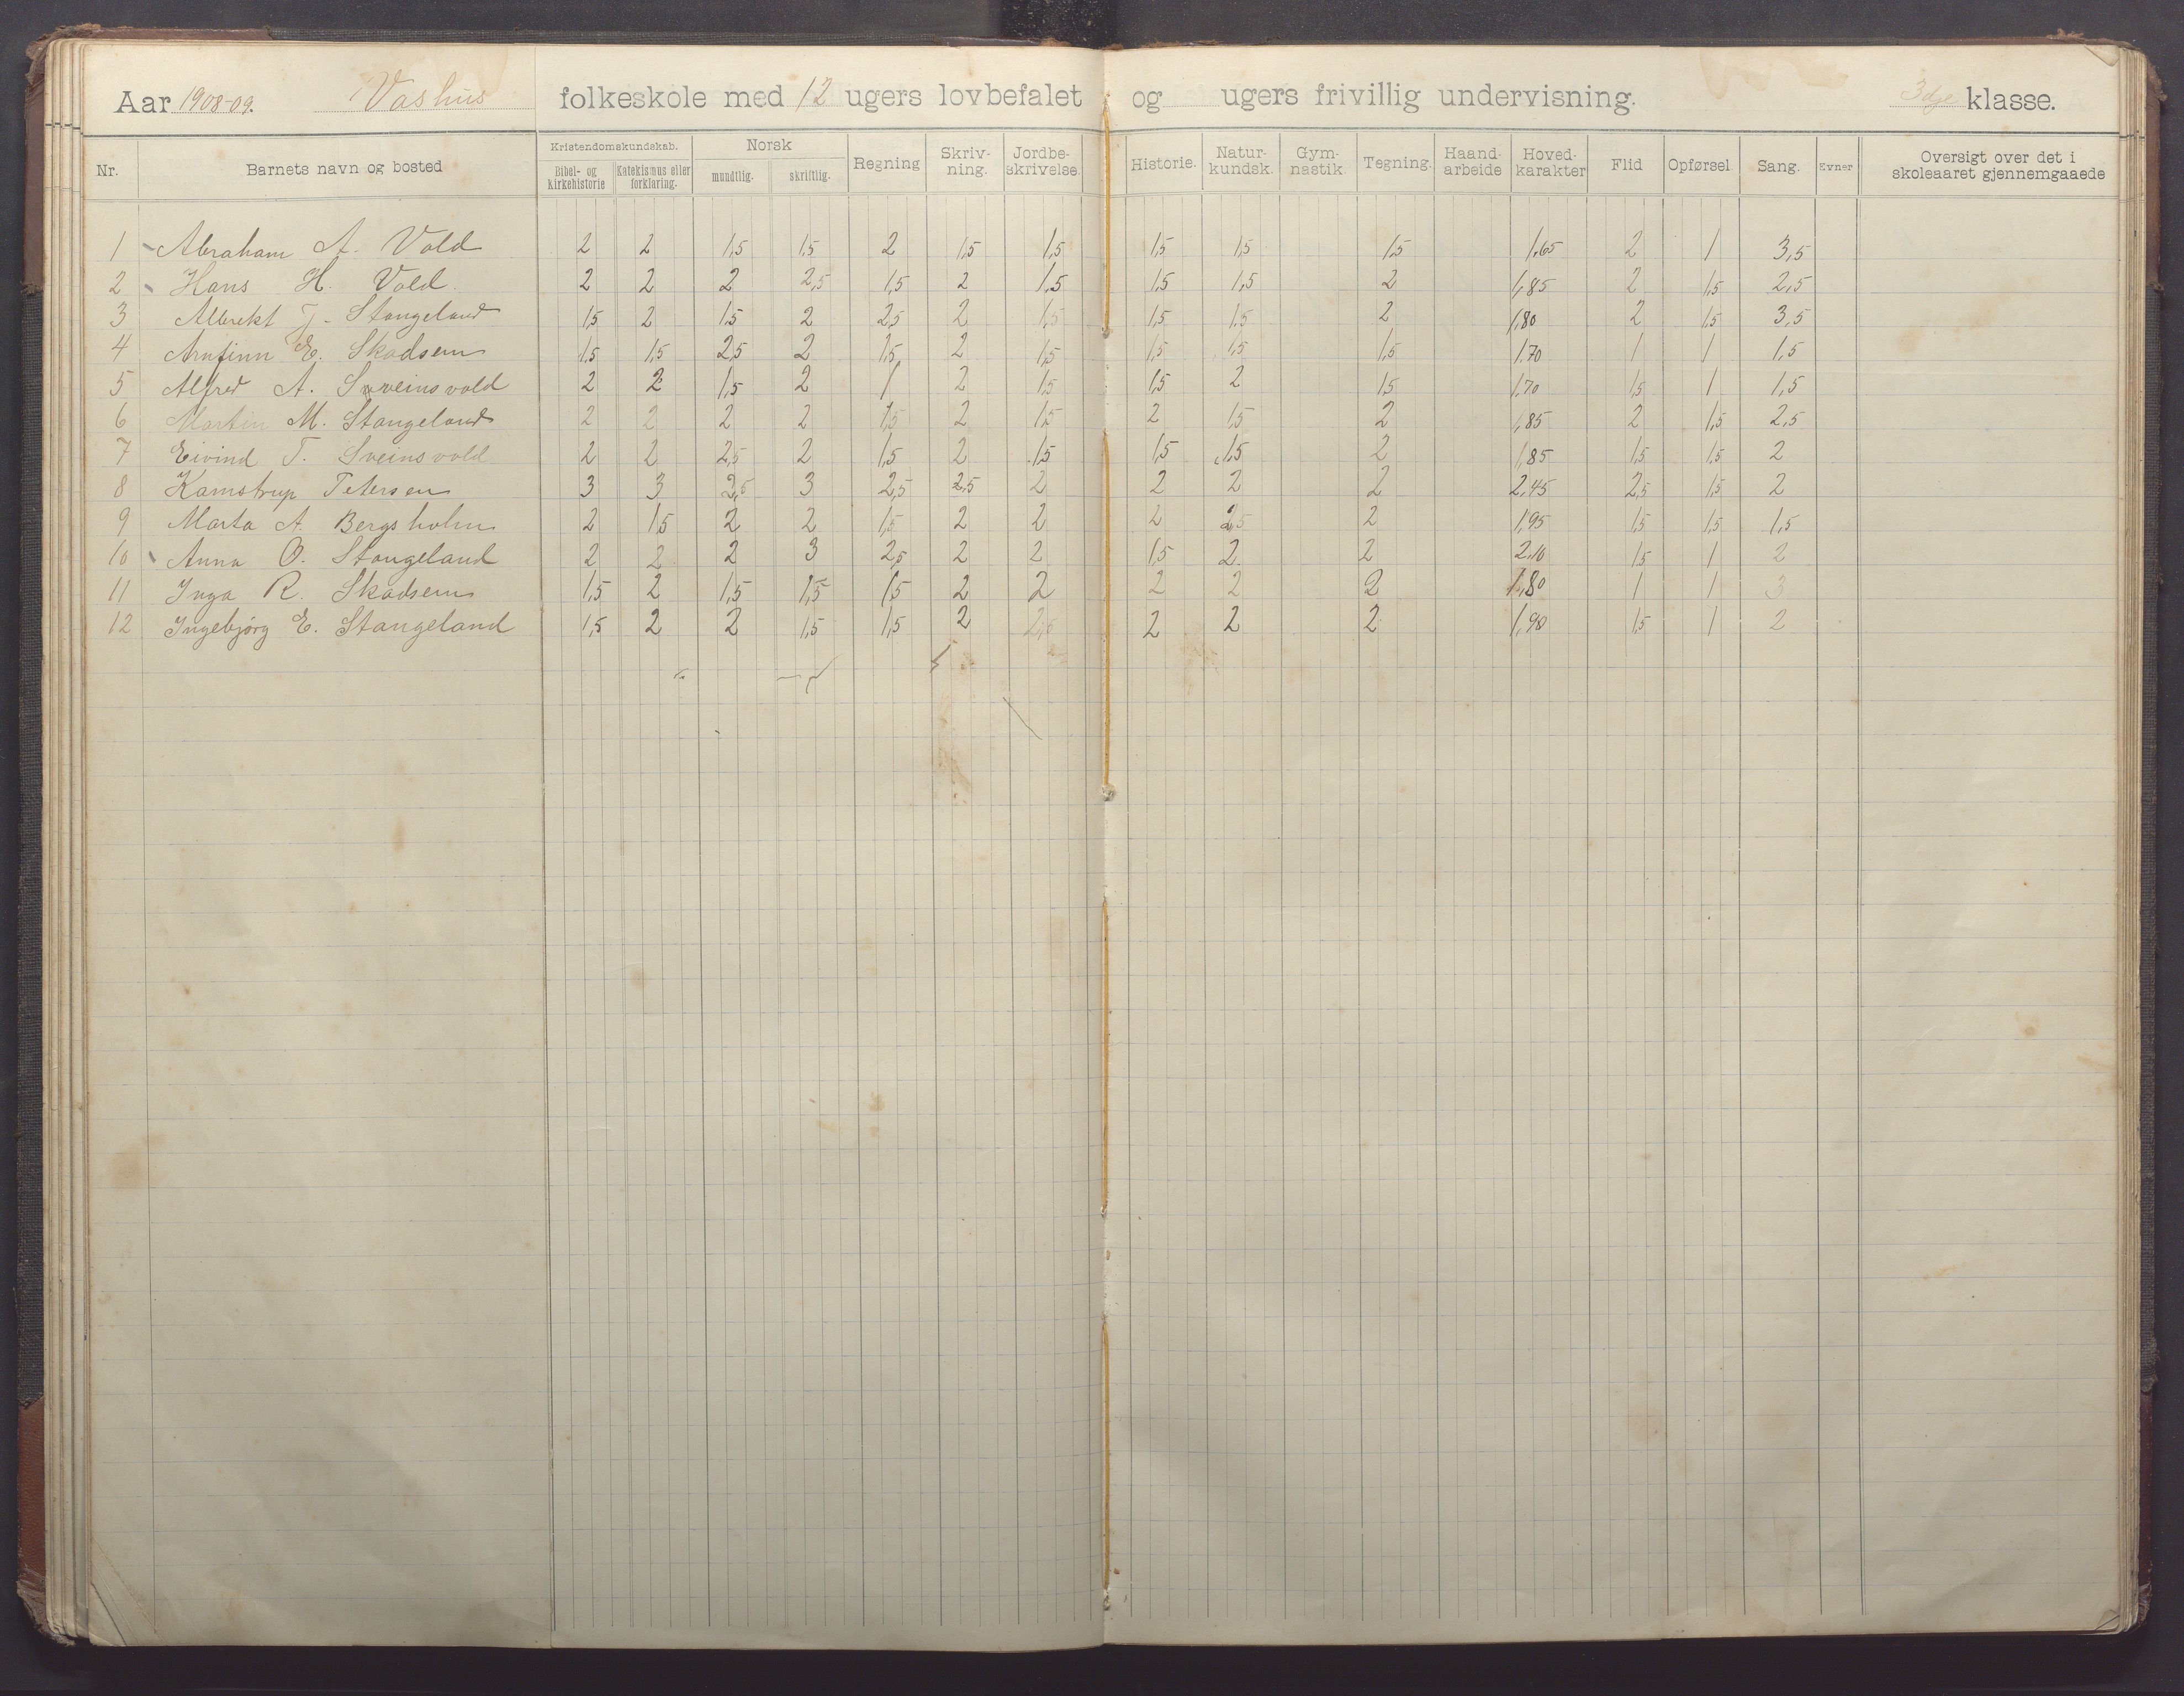 Aar 1908-09. Vashus folkeskole med 12 ugers lovbefalet og ugers frivillig undervisning. 3dje klasse.
Nr. Barnets navn og bosted Kristendomskundskab. Bibel- og kirkehistorie Katekismus eller forklaring. Norsk mundtlig. skriftlig. Regning Skriv-ning. Jordbe-skrivelse. Historie. Natur-kundsk. Gym-nastik Tegning. Haand-arbeide Hoved-karakter Flid Opførsel Sang. Evner Oversigt over det i skoleaaret gjennemgaaede
1 Abraham A. Vold 2 2 1,5 1,5 2 1,5 1,5 1,5 1,5 1,5 1,65 2 1 3,5
2 Hans H. Vold. 2 2 2 2,5 1,5 2 1,5 1,5 1,5 2 1,85 2 1,5 2,5
3 Albrekt T. Stangeland 1,5 2 1,5 2 2,5 2 1,5 1,5 1,5 2 1,80 2 1,5 3,5
4 Arnfinn E. Skadsem 1,5 1,5 2,5 2 1,5 2 1,5 1,5 1,5 1,5 1,70 1 1 1,5
5 Alfred A. Sveinsvold 2 2 1,5 2 1 2 1,5 1,5 2 1,5 1,70 1,5 1 1,5
6 Martin M. Stangeland 2 2 2 2 1,5 2 1,5 2 1,5 2 1,85 2 1,5 2,5
7 Eivind T. Sveinsvold 2 2 2,5 2 1,5 2 1,5 1,5 1,5 2 1,85 1,5 1,5 2
8 Kamstrup Petersen 3 3 2,5 3 2,5 2,5 2 2 2 2 2,45 2,5 1,5 2
9 Marta A. Bergsholm 2 1,5 2 2 1,5 2 2 2 2,5 2 1,95 1,5 1,5 1,5
10 Anna O. Stangeland 2 2 2 3 2,5 2 2 1,5 2 2 2,10 1,5 1 2
11 Inga R. Skadsem 1,5 2 1,5 1,5 1,5 2 2 2 2 2 1,80 1 1 3
12 Ingebjørg E. Stangeland 1,5 2 2 1,5 1,5 2 2,5 2 2 2 1,90 1,5 1 2